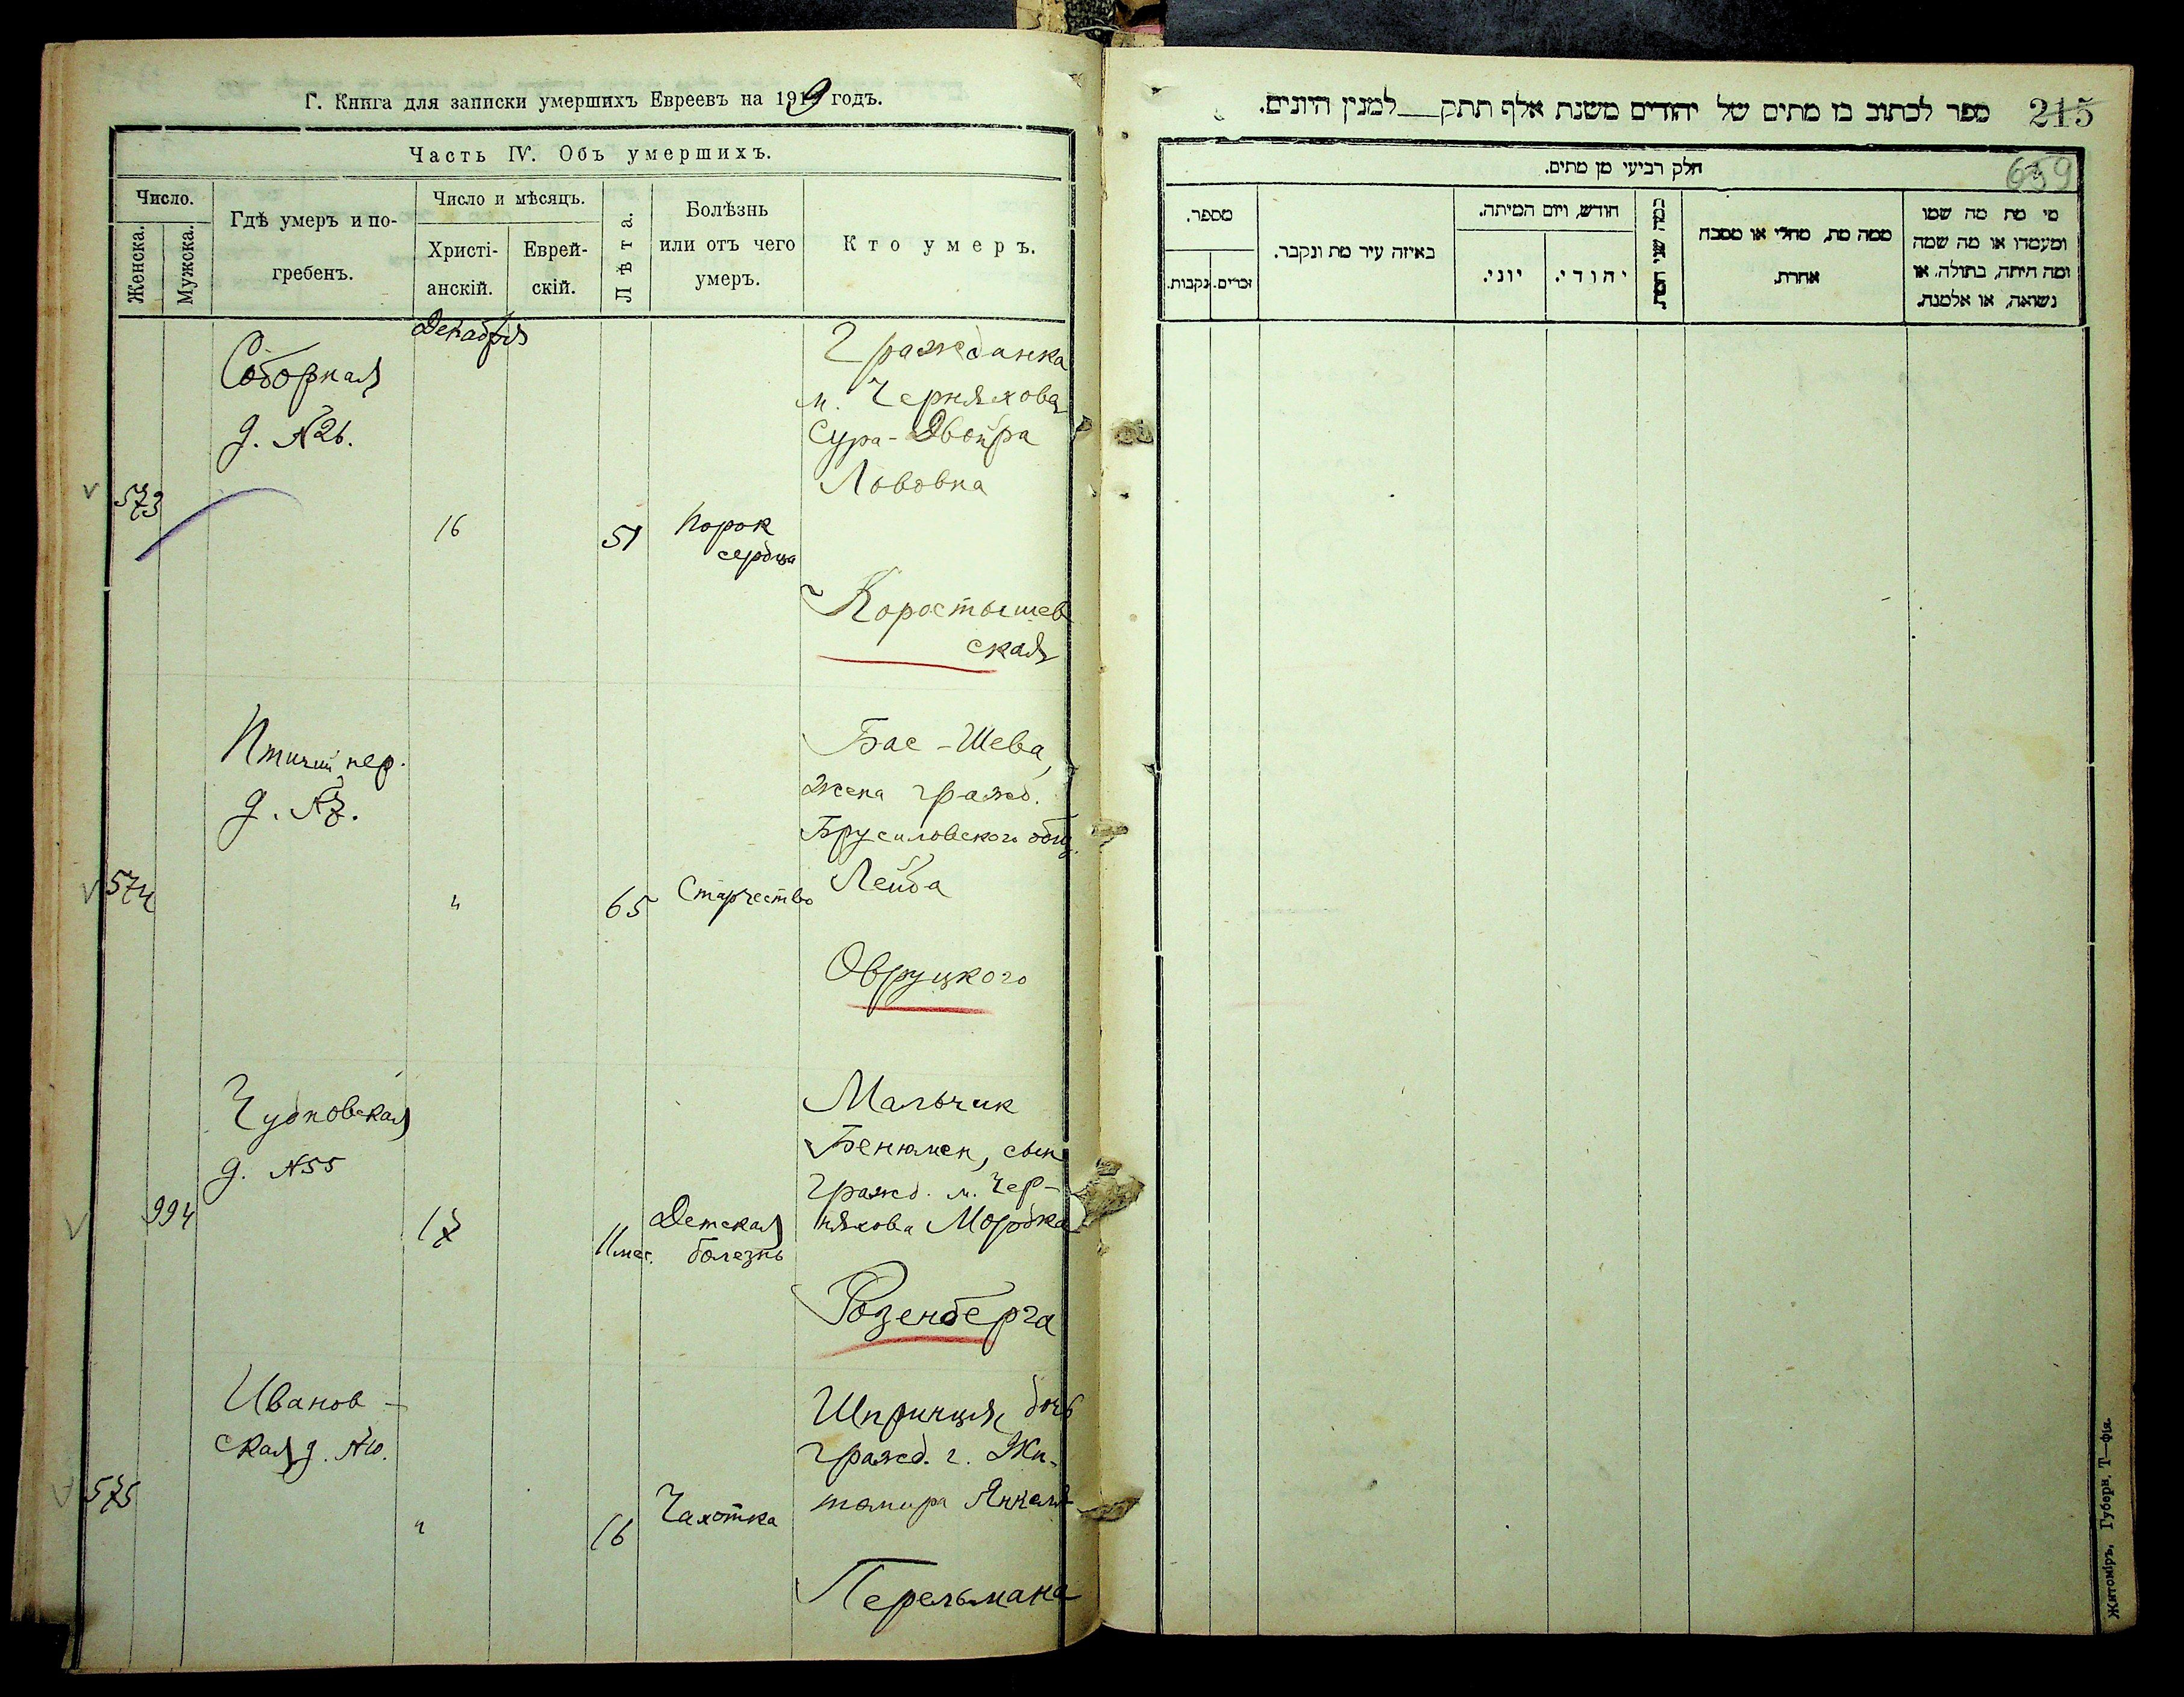 Г. Книга для записки умершихъ Евреевъ на 1919 годъ.
Часть IV. Объ умершихъ.
Число.
Женска.
Мужска.
Гдѣ умеръ и по-
гребенъ.
Число и мѣсяцъ.
Христі-
анскій.
Еврей-
скій.
Лѣта.
Болѣзнь
или отъ чего
умеръ.
Кто умеръ.
573
Соборная
д. №26.
Декабря
16
51
Порок
сердца
Гражданка
м. Черняхова
Сура-Двойра
Лововна
Коростышев
ская
574
Птичий пер.
д. №7.
"
65
Старчество
Бас-Шева,
жена гражд.
Брусиловского общ.
Лейба
Овруцкого
994
Чудновская
д. №55
17
11 мес.
Детская
болезнь
Мальчик
Бенюмен, сын
гражд. м. Чер-
няхова Мордка
Розенберга
575
Иванов-
ская д. №10.
"
16
Чахотка
Шпринця, дочь
гражд. г. Жи-
томира Янкеля
Перельмана
ספר לכתוב בו מתים של יהודים משנת אלף תתק למנין היונים.
215
639
חלק רביעי מן מתים.
מספר.
נקבות.
זכרים.
באיזה עיר מת ונקבר.
חודש, ויום המיתה.
יוני.
יהודי.
כמה שני המת.
ממה מת, מחלי או מסבה
אחרת.
מי מת מה שמו
ומעמדו או מה שמה
ומה היתה, בתולה, או
נשואה, או אלמנה.
Житоміръ, Губерн. Т—фія.